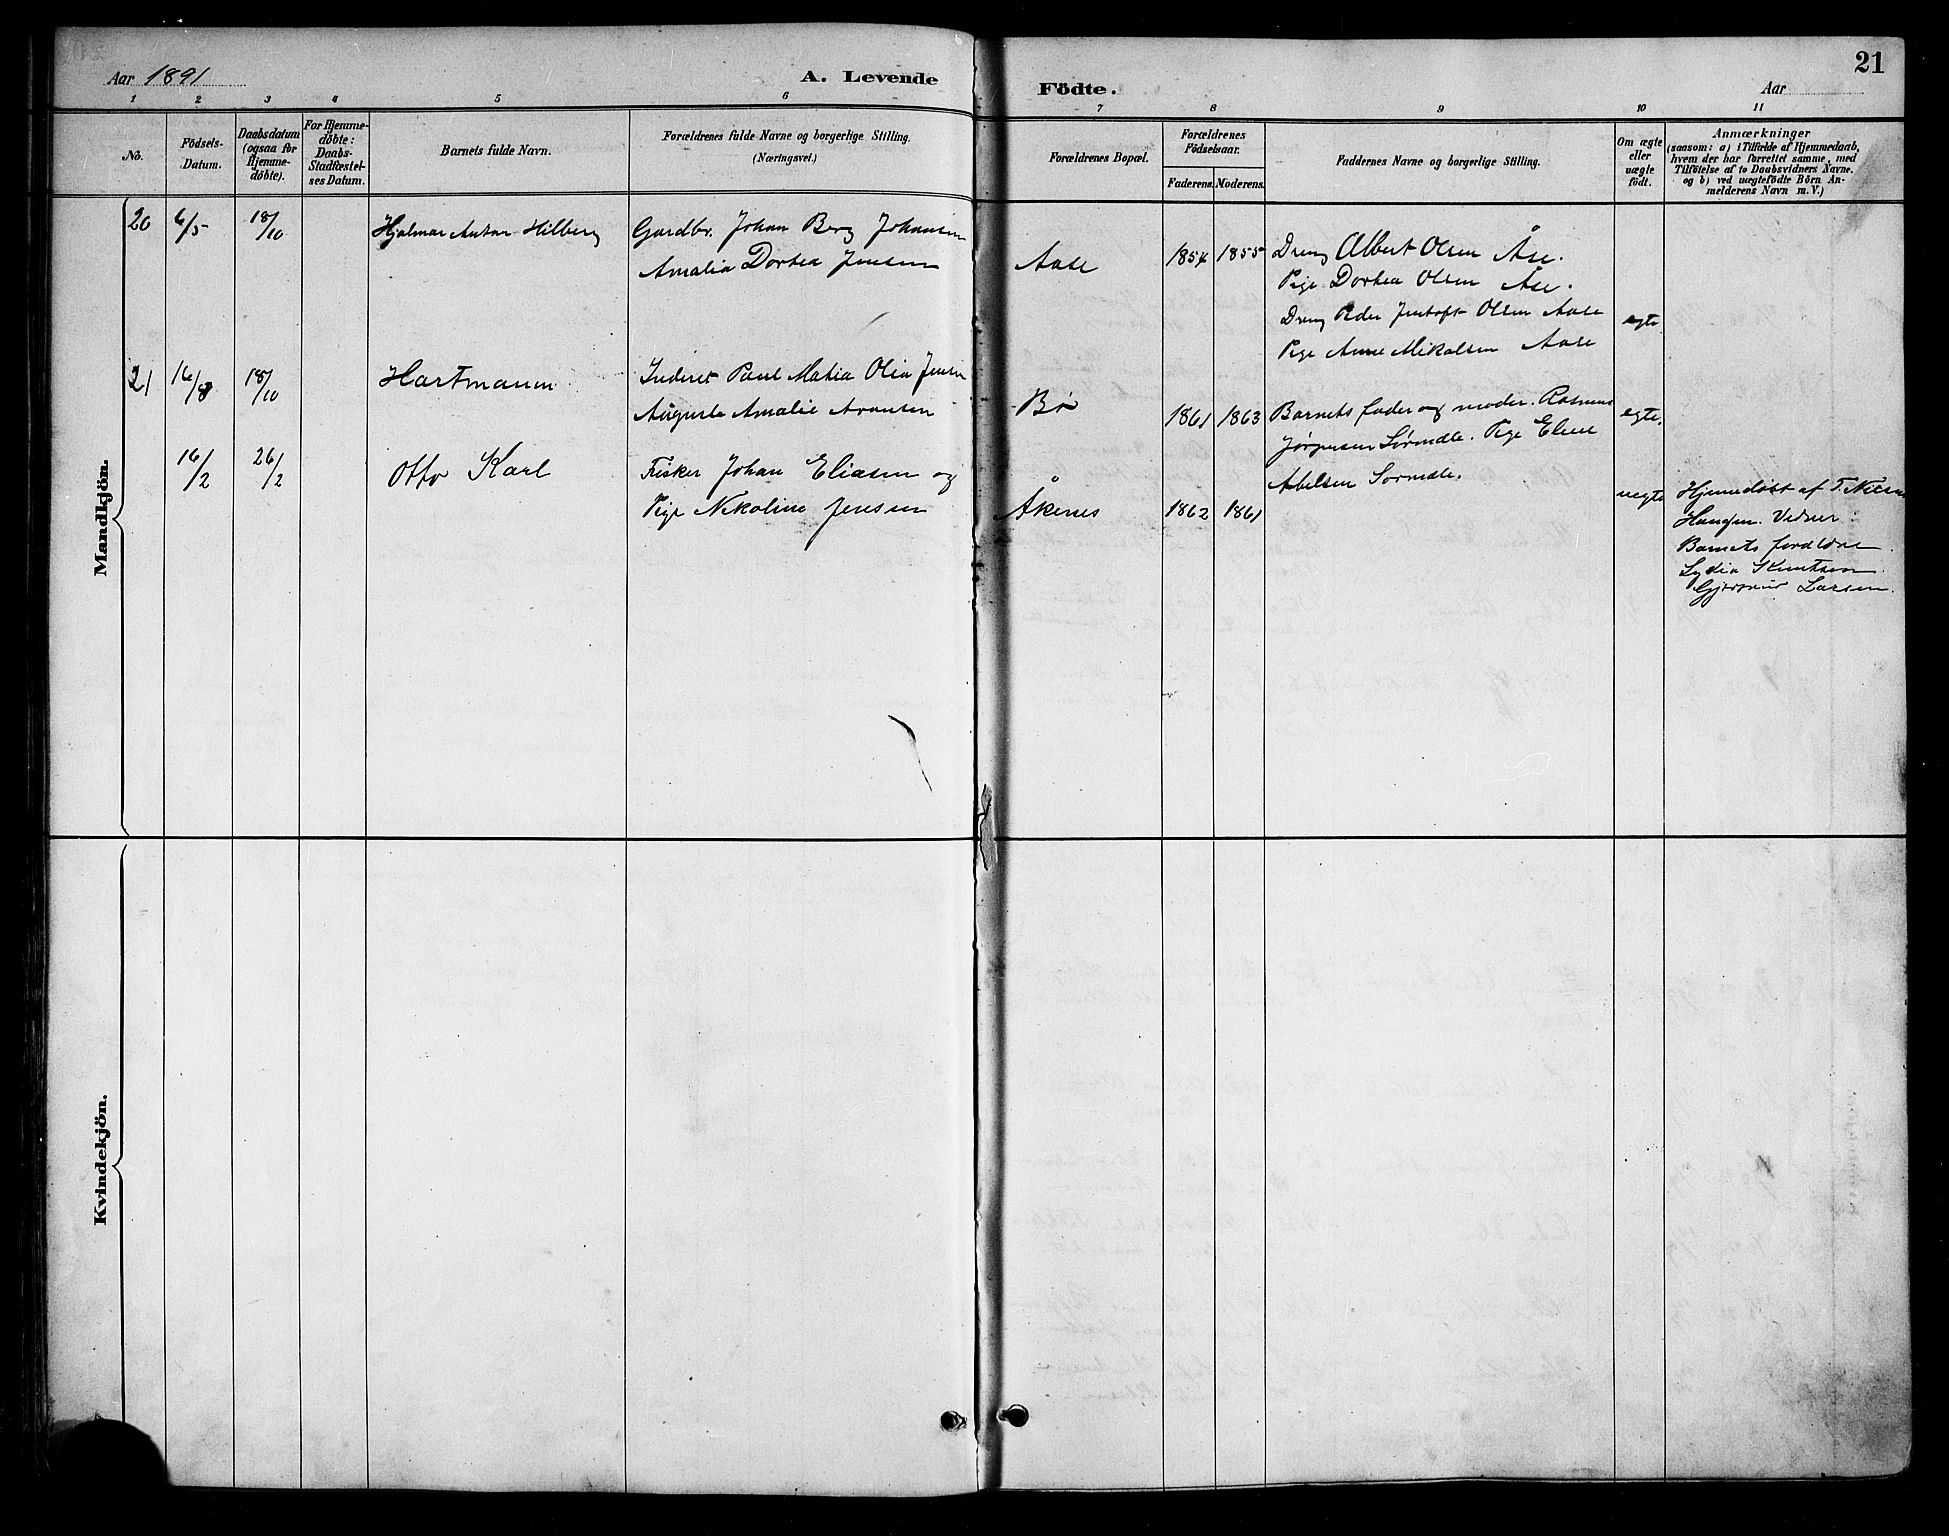 Aar 1891
A. Levende
Födte.
Aar
21
1 2 3 4 5 6 7 8 9 10 11
No.
Födsels-
Datum.
Daabsdatum
(ogsaa for
Hjemme-
döbte).
For Hjemme-
döbte:
Daabs-
Stadfæstel-
ses Datum.
Barnets fulde Navn.
Forældrenes fulde Navne og borgerlige Stilling.
(Næringsvei.)
Forældrenes Bopæl.
Forældrenes
Födselsaar.
Faderens. Moderens.
Faddernes Navne og borgerlige Stilling.
Om ægte
eller
uægte
födt.
Anmærkninger
(saasom: a) i Tilfælde af Hjemmedaab,
hvem der har forrettet samme, med
Tilföielse af to Daabsvidners Navne,
og b) ved uægtefödte Börn An-
melderens Navn m. V.)
Mandkjön.
20 6/5 18/10 Hjalmar Anton Hilberg
Gardbr. Johan Berg Johansen
Amalia Dortea Jensen
Aase 1854 1855
Dreng Albert Olsen Åse.
Pige Dortea Olsen Åse.
Dreng Peder Jentoft Olsen Aase
Pige Anne Mikalsen Aase
egte
21 16/8 18/10 Hartmann
Inderst Paul Matia Olia Jensen
Augusta Amalie Aronsen
Bø 1861 1863
Barnets fader og moder. Rasmus
Jørgensen Sørmdle. Pige Eline
Abelsen Sormdle.
egte.
16/2 26/2 Otto Karl
Fisker Johan Eliasen og
Pige Nikoline Jensen
Åkenes 1862 1861
uegte
Hjemedøbt af T.
Haugen. Vidner:
Barnets foreldre.
Lydia Knutsen.
Larsen.
Kvindekjön.